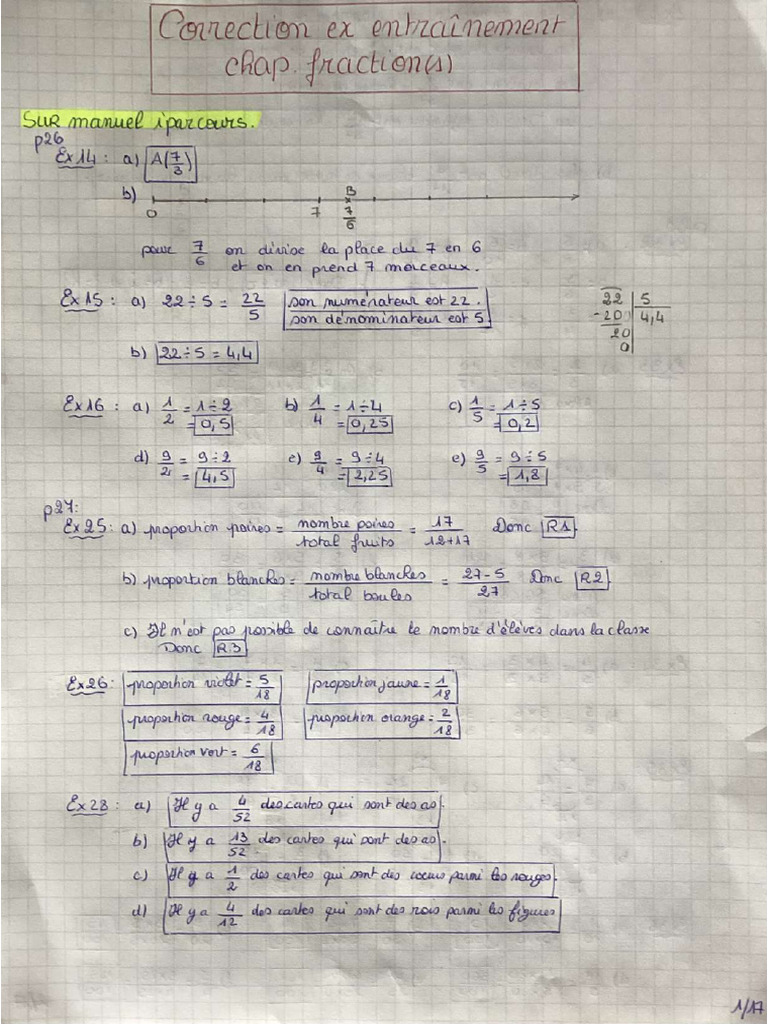 Correction ex entraînement
chap. fraction(s)
SUR manuel iparcours.
p26
Ex14 : a) A(7/3)
b) 0 7 B 7/6
pour 7/6 on divise la place du 7 en 6
et on en prend 7 morceaux.
Ex15 : a) 22÷5 = 22/5 son numérateur est 22.
son dénominateur est 5
22 5
-20 4,4
20
0
b) 22÷5 = 4,4
Ex16 : a) 1/2 = 1÷2 b) 1/4 = 1÷4 c) 1/5 = 1÷5
= 0,5 = 0,25 = 0,2
d) 9/2 = 9÷2 e) 9/4 = 9÷4 e) 9/5 = 9÷5
= 4,5 = 2,25 = 1,8
p27:
Ex25: a) proportion poires = nombre poires/total fruits = 17/12+17 Donc R1
b) proportion blanches = nombre blanches/total boules = 27-5/27 Donc R2
c) Il n'est pas possible de connaître le nombre d'élèves dans la classe
Donc R3
Ex26: proportion violet = 5/18 proportion jaune = 1/18
proportion rouge = 4/18 proportion orange = 2/18
proportion vert = 6/18
Ex28 : a) Il y a 4/52 des cartes qui sont des as.
b) Il y a 13/52 des cartes qui sont des as.
c) Il y a 1/2 des cartes qui sont des cœurs parmi les rouges.
d) Il y a 4/12 des cartes qui sont des rois parmi les figures
1/17